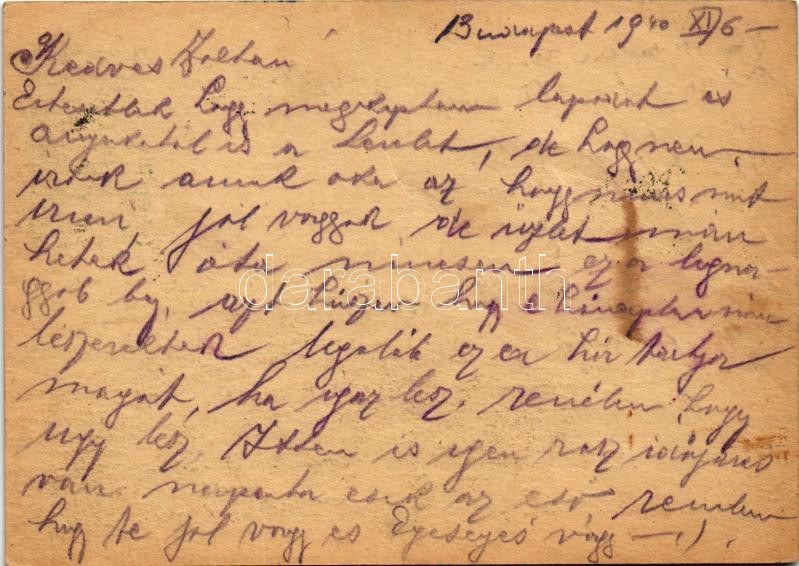 Budapest 1940 XI/6 –
Kedves Zoltán
Értesitlek hogy megkaptam lapodat is
anyukától is a levelet, de hogy nem
irok annak oka az hogy nincs mit
irni, jól vagyok de üzlet már
hetek óta nincsen ez a legna-
ggob baj, azt hiszem hogy e hónapban már
leszereltek legalább ez a hír tartja
magát, ha igaz lesz. remélem hogy
ugy lesz. Itten is igen rosz időjárás
van naponta esik az eső, remélem
hogy te jól vagy és Egeseges vagy –
darabanth